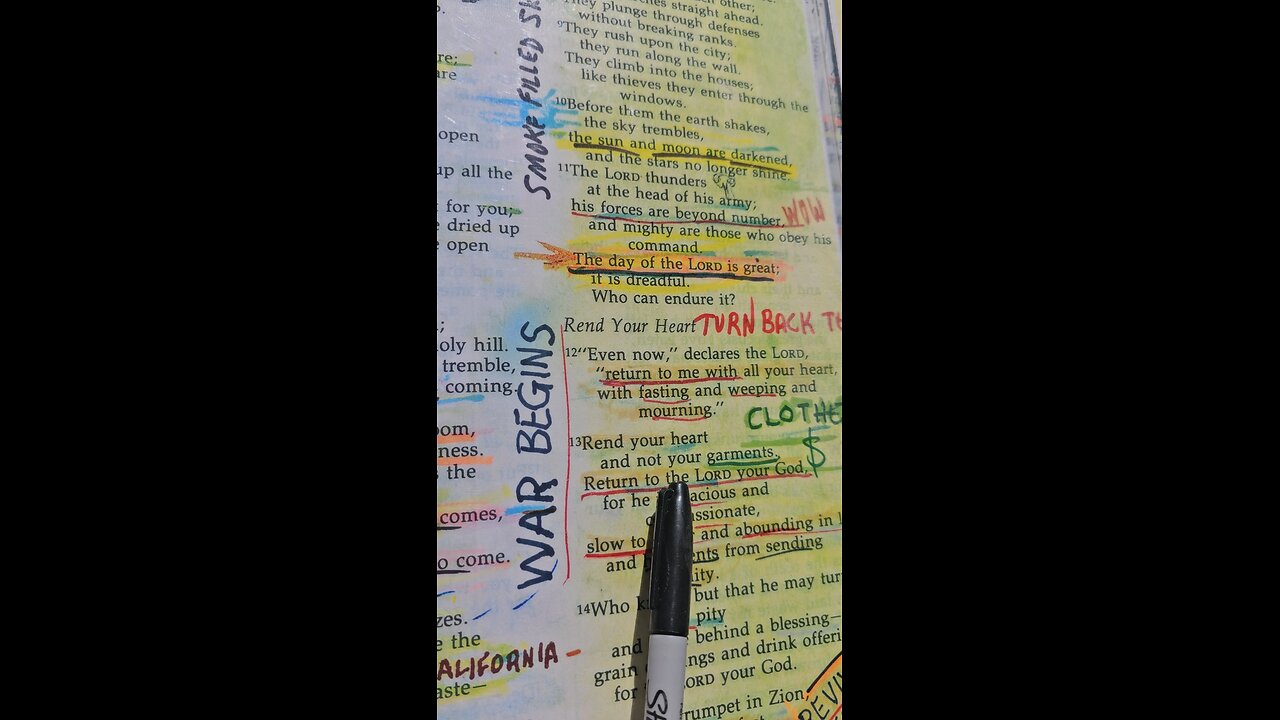 re;
are
open
up all the
for you;
dried up
open
oly hill.
tremble,
coming.
oom,
ness.
the
comes,
o come.
zes.
e the
ALIFORNIA -
aste—
SMOKE FILLED
WAR BEGINS
each other;
straight ahead.
They plunge through defenses
without breaking ranks.
9They rush upon the city;
they run along the wall.
They climb into the houses;
like thieves they enter through the
windows.
10Before them the earth shakes,
the sky trembles,
the sun and moon are darkened,
and the stars no longer shine.
11The LORD thunders
at the head of his army;
his forces are beyond number, WOW
and mighty are those who obey his
command.
The day of the LORD is great;
it is dreadful.
Who can endure it?
Rend Your Heart TURN BACK
12“Even now,” declares the LORD,
“return to me with all your heart,
with fasting and weeping and
mourning.”
CLOTHE
$
13Rend your heart
and not your garments.
Return to the LORD your God,
for he acious and
ssionate,
slow to and abounding in
and ents from sending
ity.
14Who but that he may tur
pity
and behind a blessing—
grain ings and drink offeri
for ORD your God.
rumpet in Zion,
REVI